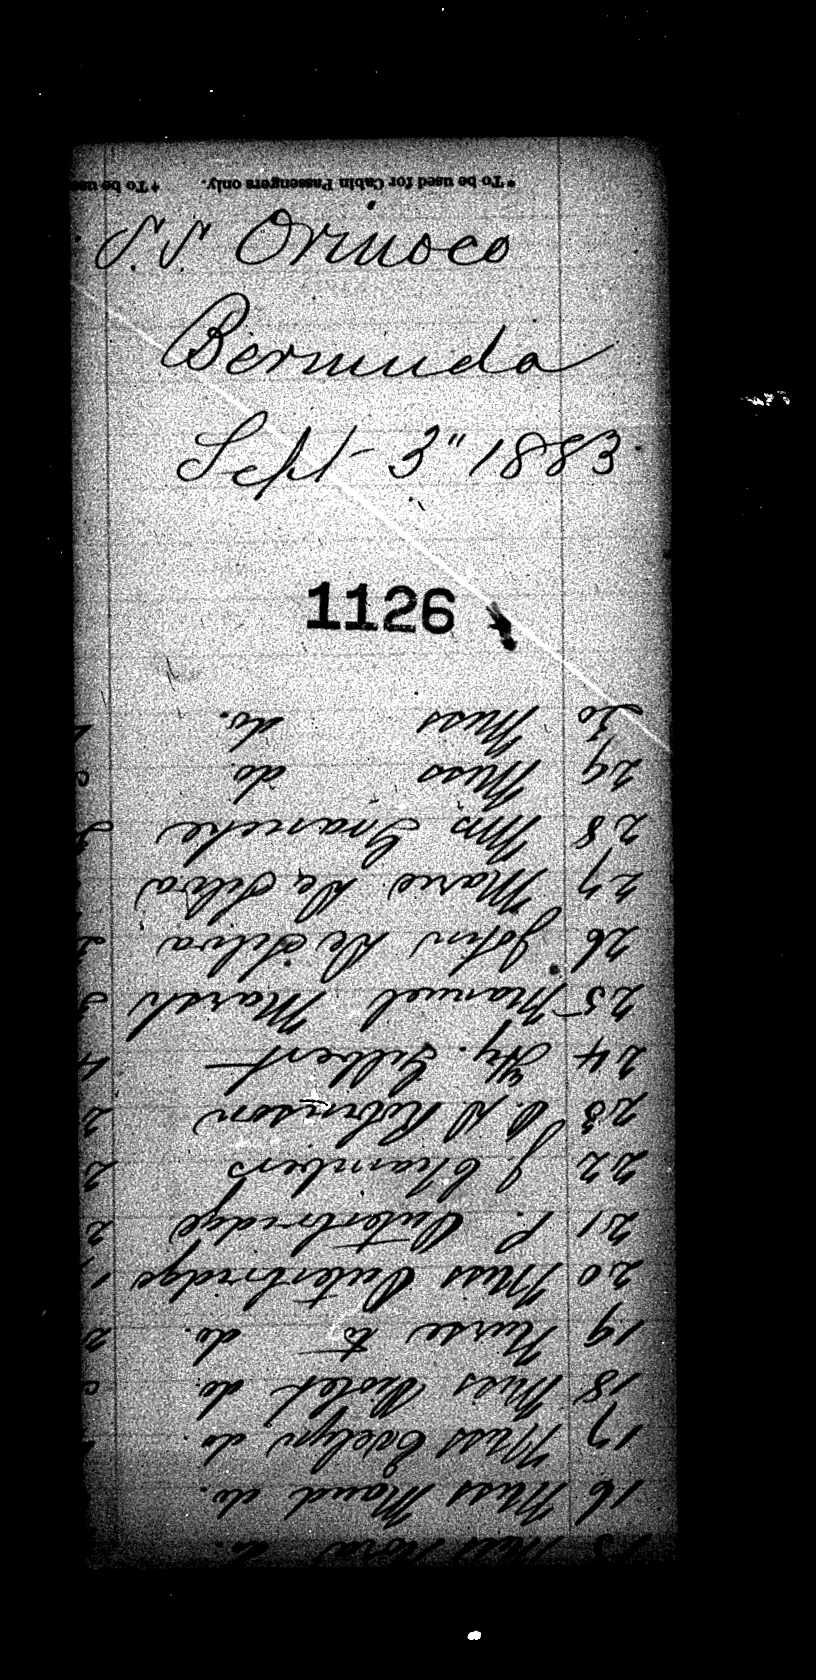 *To be used for Cabin Passengers only. *To be use
S.S. Orinoco
Bermuda
Sept- 3" 1883
1126
15 Miss do.
16 Miss Maud do.
17 Miss Evelyn do.
18 Miss Violet do.
19 Nurse to do.
20 Miss Outerbridge
21 P. Outerbridge
22 J. Chambers
23 Robinson
24 Hy. Gilbert
25 Manuel March
26 John De Silva
27 Marie De Silva
28 Mrs
29 Miss do.
30 Miss do.